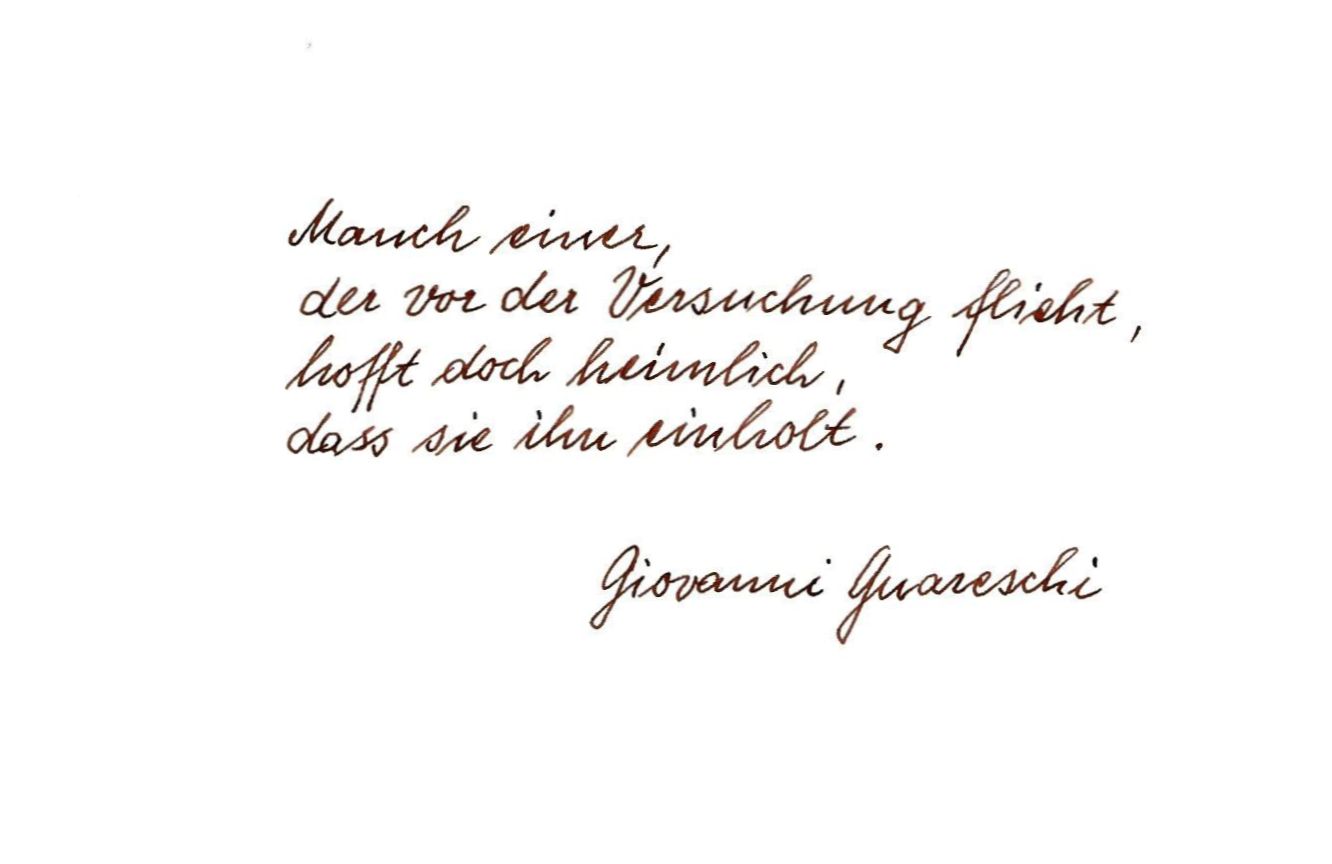 Manch einer,
der vor der Versuchung flieht,
hofft doch heimlich,
dass sie ihn einholt.
Giovanni Guareschi